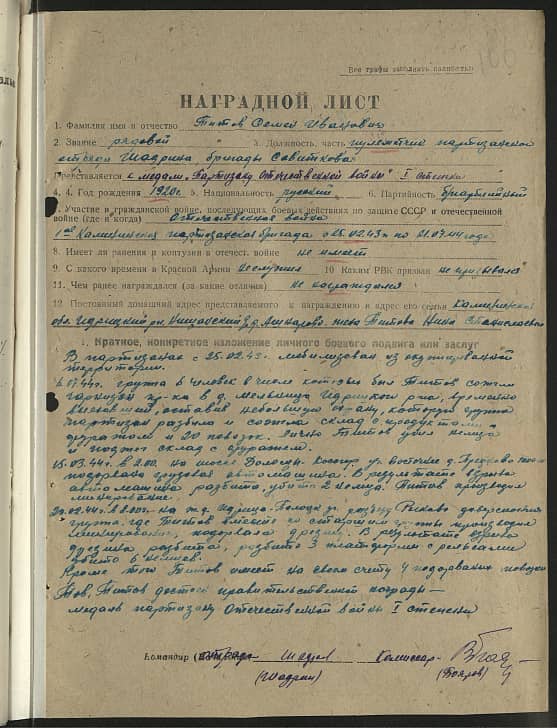 186
Все графы заполнять полностью
НАГРАДНОЙ ЛИСТ
1. Фамилия имя и отчество Титов Семен Иванович
2. Звание рядовой 3. Должность, часть пулеметчик партизанского
отряда Шадрина бригады
Представляется к медали "Партизану Отечественной войны" I степени
4. Год рождения 1920г. 5. Национальность русский 6. Партийность беспартийный
7. Участие в гражданской войне, последующих боевых действиях по защите СССР и отечественной
войне (где и когда) Отечественная война
1ая Калининская партизанская бригада с 25.02.43г. по 21.07.44 года
8. Имеет ли ранения и контузии в отечест. войне не имеет
9. С какого времени в Красной Армии не служил 10 Каким РВК призван не призывался
11. Чем ранее награждался (за какие отличия) не награждался
12. Постоянный домашний адрес представляемого к награждению и адрес его семьи Калининская
обл. Идрицкий рн. д. жена Титова Нина Станиславовна
Краткое, конкретное изложение личного боевого подвига или заслуг
В партизанах с 25.02.43г. мобилизован из оккупированной
территории.
07.44г. группа 6 человек в числе которых был Титов сожгли
гарнизон пр-ка в д. Мельница Идрицкого р-на, временно
оставив небольшую охрану, которую группа
партизан разбила и сожгла склад с продуктами
фуражом и 20 повозок. Лично Титов убил немца
и поджог склад с фуражом.
15.03.44г. в 2.00 на шоссе д.
подорвана грузовая автомашина. В результате взрыва
автомашина разбита, убито 2 немца. Титов производил
минирование.
в на ж.д. Идрица-Полоцк
группа, где Титов вместе со старшим группы производил
минирование, подорвала дрезину. В результате взрыва
дрезина разбита, разбито 3 платформы с рельсами
убито 6 немцев.
Кроме того Титов имеет на своем счету 4 подорванных повозки
Тов. Титов достоин правительственной награды —
медаль партизану Отечественной войны I степени
Командир отряда Комиссар
(Шадрин) (Бояров)